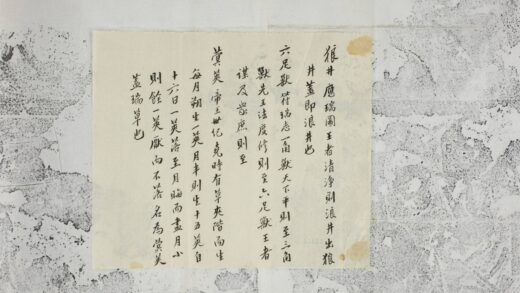 狼井 應瑞圖王者清淨則浪井出狼
井蓋即浪井也
六足獸 符瑞志一角獸天下平則至三角
獸先王法度修則至六足獸王者
謀及衆庶則至
蓂莢 帝王世紀堯時有草夾階而生
每月朔生一莢月半則生十五莢自
十六日一莢落至月晦而盡月小
則餘一莢厭而不落名為蓂莢
蓋瑞草也